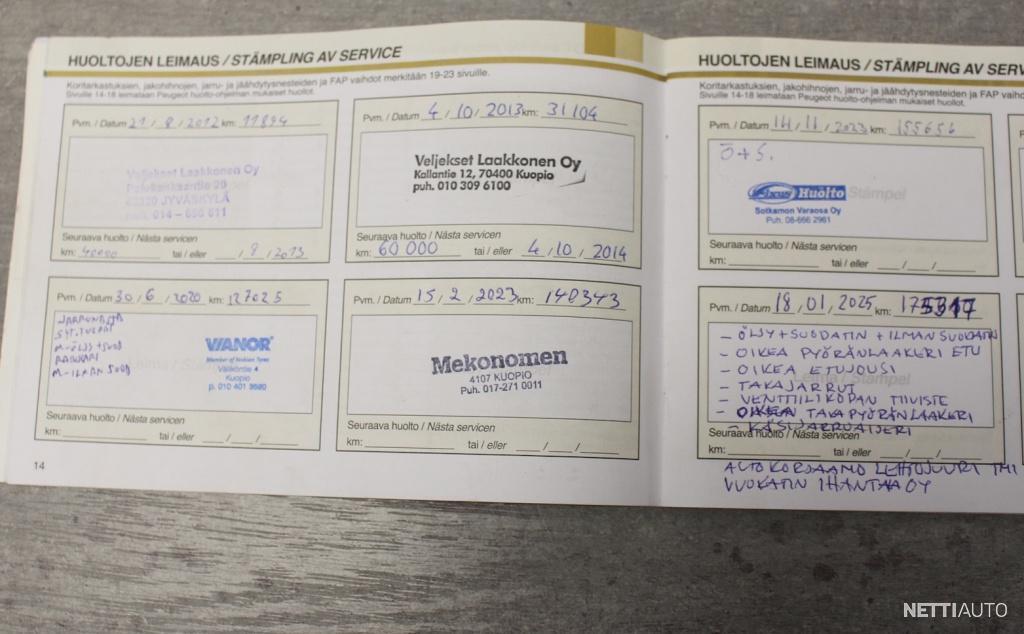 HUOLTOJEN LEIMAUS / STÄMPLING AV SERVICE
Koritarkastuksien, jakohihnojen, jarru- ja jäähdytysnesteiden ja FAP vaihdot merkitään 19-23 sivuille.
Sivuille 14-18 leimataan Peugeot huolto-ohjelman mukaiset huollot.
Pvm. / Datum 21 / 8 / 2012 km: 11894
Veljekset Laakkonen Oy
JYVÄSKYLÄ
Seuraava huolto / Nästa servicen
km: 40000 tai / eller / 8 / 2013
Pvm. / Datum 4 / 10 / 2013 km: 31104
Veljekset Laakkonen Oy
Kallantie 12, 70400 Kuopio
puh. 010 309 6100
Seuraava huolto / Nästa servicen
km: 60 000 tai / eller 4 / 10 / 2014
Pvm. / Datum 30 / 6 / 2020 km: 127025
M-ÖLJY + SUOD
VIANOR
Member of Nokian Tyres
Väliköntie 4
Kuopio
p. 010 401 9680
Seuraava huolto / Nästa servicen
km: tai / eller / /
Pvm. / Datum 15 / 2 / 2023 km: 140343
Mekonomen
4107 KUOPIO
Puh. 017-271 0011
Seuraava huolto / Nästa servicen
km: tai / eller / /
14
HUOLTOJEN LEIMAUS / STÄMPLING AV SERV
Koritarkastuksien, jakohihnojen, jarru- ja jäähdytysnesteiden ja FAP vaihd
Sivuille 14-18 leimataan Peugeot huolto-ohjelman mukaiset huollot.
Pvm. / Datum 14 / 11 / 2023 km: 155656
Ö + S.
Fixus Huolto Stämpel
Sotkamon Varaosa Oy
Puh. 08-666 2961
Seuraava huolto / Nästa servicen
km: tai / eller / /
Pvm. / Datum 18 / 01 / 2025 km:
- ÖLJY + SUODATIN + ILMAN SUODATIN
- OIKEA PYÖRÄNLAAKERI ETU
- OIKEA ETUJOUSI
- TAKAJARRUT
- VENTTIILIKOPAN TIIVISTE
- OIKEA TAKAPYÖRÄNLAAKERI
- KÄSIJARRUVAIJERI
Seuraava huolto / Nästa servicen
km: tai / eller / /
AUTOKORJAAMO LEHTOJUURI TMI
VUOKATIN IHANTAA OY
NETTIAUTO